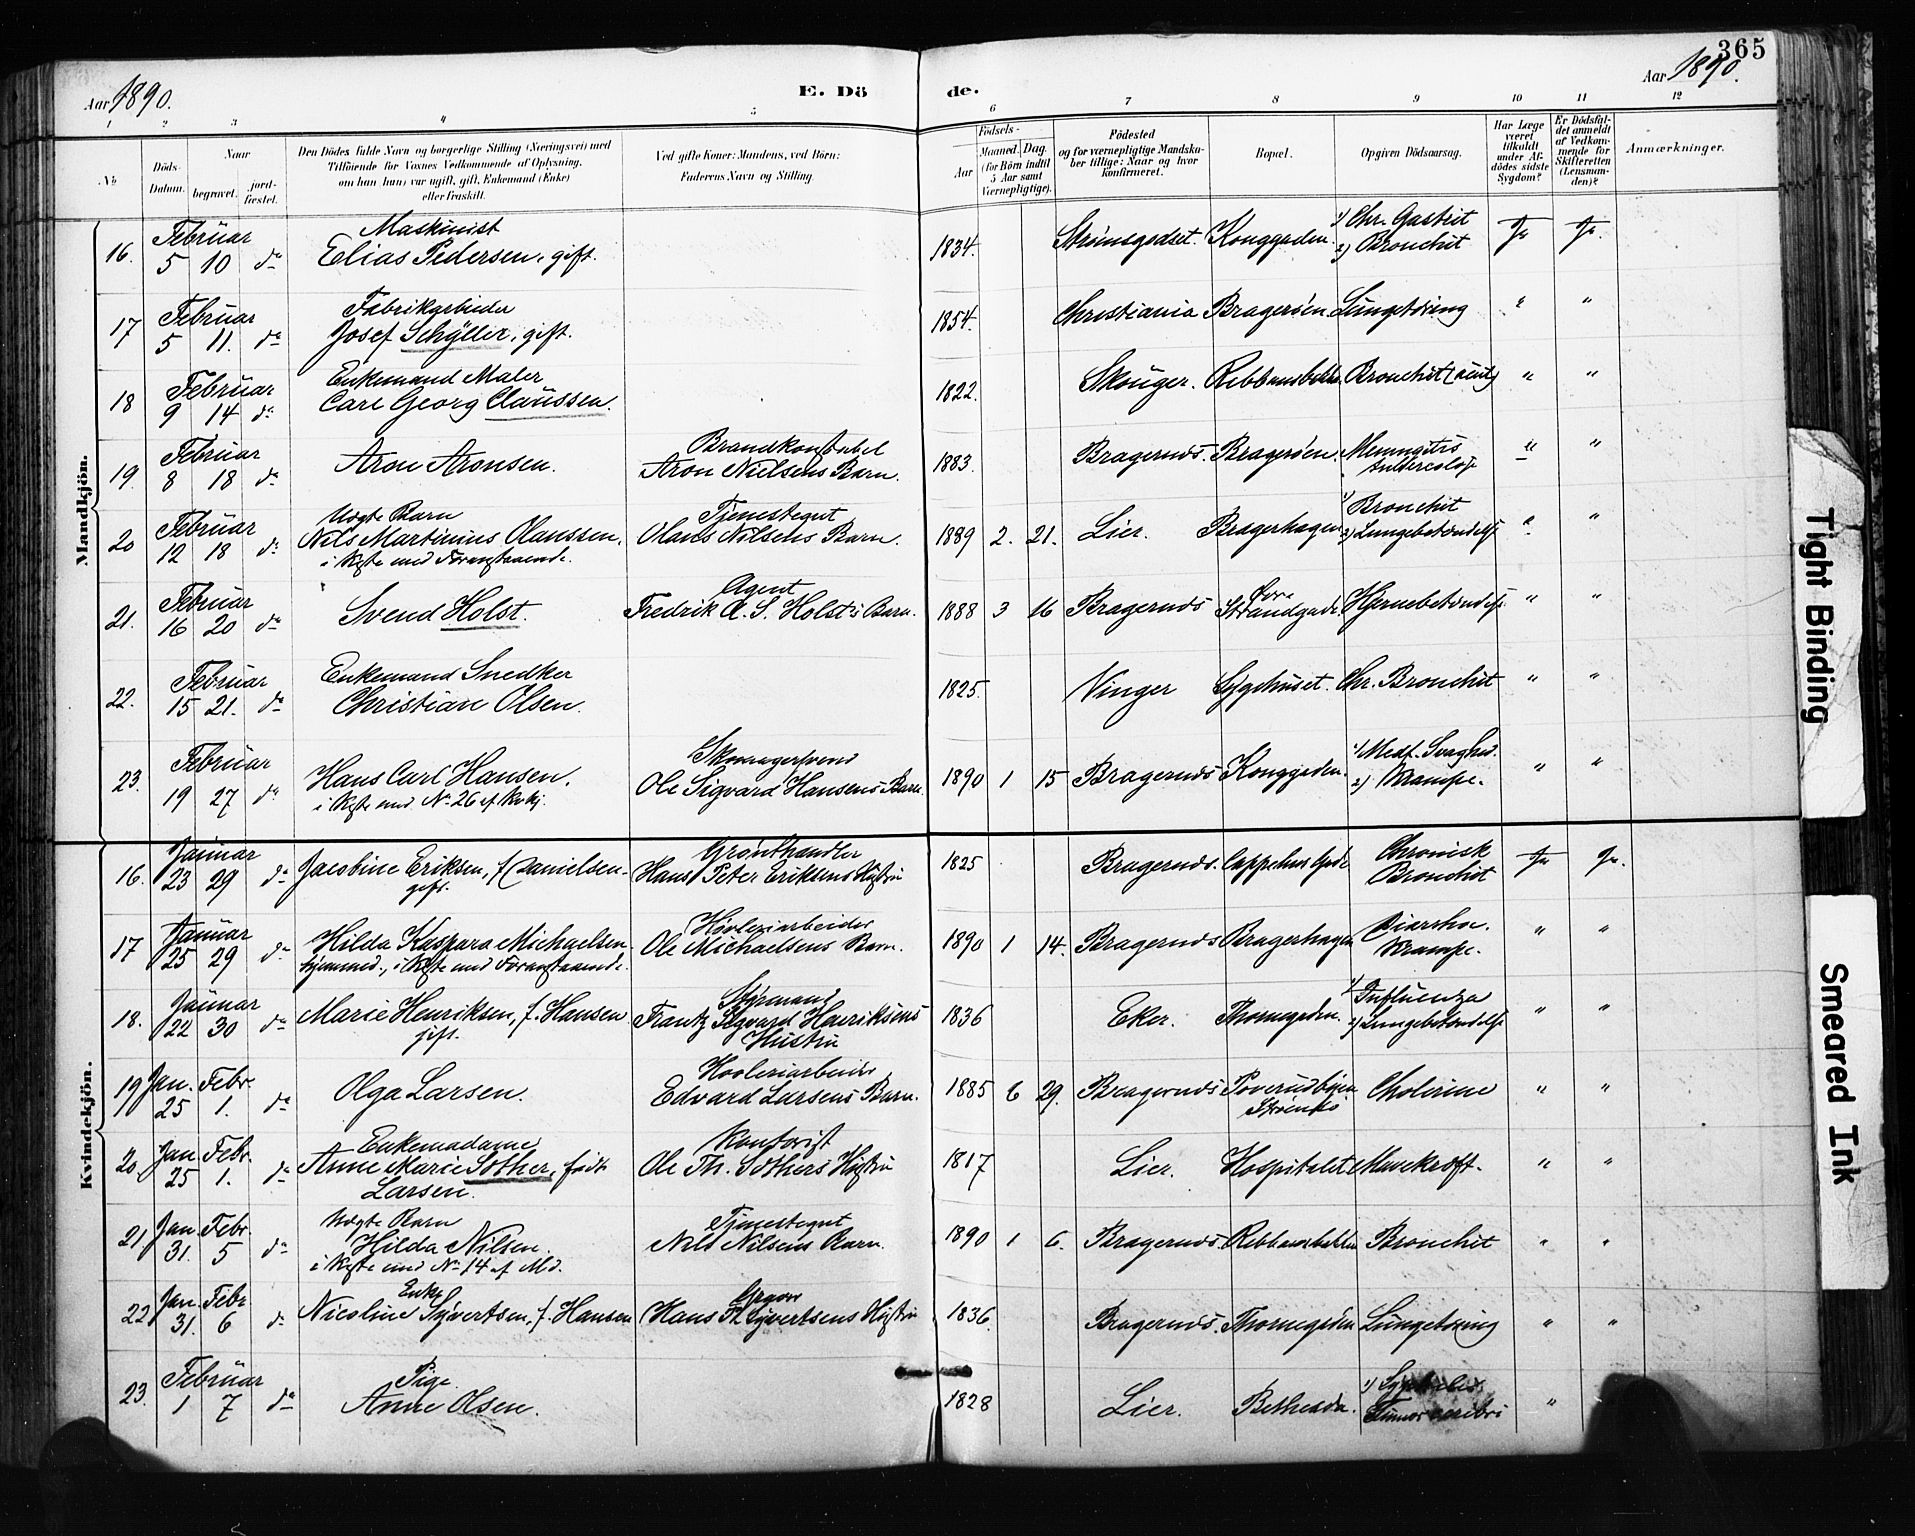 365
Aar 1890.
E. Dö
de.
Aar 1890.
1 2 3 4 5 6 7 8 9 10 11 12
No
Döds-Datum.
Naar
begravet.
jord-fæstet.
Den Dödes fulde Navn og borgerlige Stilling (Næringsvei) med
Tilföiende for Voxnes Vedkommende af Oplysning,
om han (hun) var ugift, gift, Enkemand (Enke)
eller fraskilt.
Ved gifte Koner: Mandens, ved Börn:
Faderens Navn og Stilling.
Födsels-
Aar
Maaned. Dag.
(for Börn indtil
5 Aar samt
Værnepligtige).
Födested
og for værnepligtige Mandska-
ber tillige: Naar og hvor
konfirmeret.
Bopæl.
Opgiven Dödsaarsag.
Har Læge
været
tilkaldt
under Af-
dödes sidste
Sygdom?
Er Dödsfal-
det anmeldt
af Vedkom-
mende for
Skifteretten
(Lensman-
den)?
Anmærkninger.
Mandkjön.
16. Februar 5 10 do Maskinist
Elias Pedersen, gift. 1834. Strømsgodset. Konggaden. 1) Chr. Gastrit
2) Bronchit Ja Ja.
17 Februar 5 11. do Fabrikarbeider
Josef Schÿller, gift. 1854. Christiania Bragerøen Lungetæring " "
18 Februar 9 14 do Enkemand Maler
Carl Georg Claussen. 1822. Skouger. Bronchit (acut) " "
19. Februar 8 18 do Aron Aronsen. Brandkonstabel
Aron Nielsens Barn. 1883. Bragernæs. Bragerøen. Meningitis
" "
20 Februar 12 18 do Uægte Barn
Nils Martinius Olaussen,
i Kiste med Foranstaaende. Tjenestegut
Olaus Nilsens Barn. 1889 2. 21. Lier. Bragerhagen 1) Bronchit
2) Lungebetændelse " "
21. Februar 16 20 do Svend Holst. Agent
Fredrik A. S. Holst's Barn. 1888 3 16 Bragernæs Øvre
Strandgade. Hjernebetændelse " "
22. Februar 15 21. do Enkemand Snedker
Christian Olsen. 1825. Vinger Sygehuset. Chr. Bronchit " "
23. Februar 19 27 do Hans Carl Hansen.
i Kiste med No 26 af Kvkj. Skomagersvend
Ole Sigvard Hansens Barn 1890 1 15 Bragernæs Konggaden. 1) Medf. Svaghed.
2) Krampe. " "
Kvindekjön.
16. Januar 23 29 do Jacobine Eriksen, f. Danielsen
gift. Grønthandler
Hans Peter Eriksens Hustru 1825 Bragernæs. Chronisk
Bronchit Ja Ja.
17 Januar 25 29 do Hilda Kaspara Michaelsen
hjemmed., i Kiste med Foranstaaende. Høvleriarbeider
Ole Michaelsens Barn. 1890 1 14. Bragernæs Bragerhagen Diarrhoe.
Krampe. " "
18. Januar 22 30 do Marie Henriksen, f. Hansen
gift. Styrmand
Frantz Sigvard Henriksens
Hustru 1836 Eker. Thornegaden. 1) Influenza
2) Lungebetændelse " "
19 Jan. 25 Febr. 1. do Olga Larsen. Høvleriarbeider
Edvard Larsens Barn. 1885 6 29. Bragernæs Cholerine " "
20 Jan 25 Febr. 1. do Enkemadame
Anne Marie Sother, født
Larsen. Kontorist
Ole Th. Sothers Hustru 1817 Lier. Hospitalet Mavekræft. " "
21 Jan 31. Febr. 5 do Uægte Barn
Hilda Nilsen.
i Kiste med No 14 af Md. Tjenestegut
Nils Nilsens Barn. 1890 1 6. Bragernæs. Bronchit " "
22 Jan. 31. Febr 6 do Enke
Nicoline Syvertsen, f. Hansen Hans Syvertsens Hustru 1836. Bragernæs. Thornegaden Lungetæring " "
23. Februar 1 7 do Pige
Anne Olsen. 1828 Lier. Bethesda. "
Tight Binding
Smeared Ink